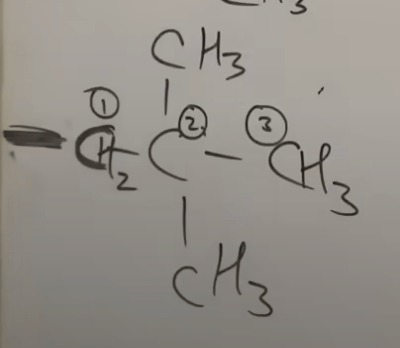 CH3
CH3
① ② ③
— CH2 — C — CH3
CH3